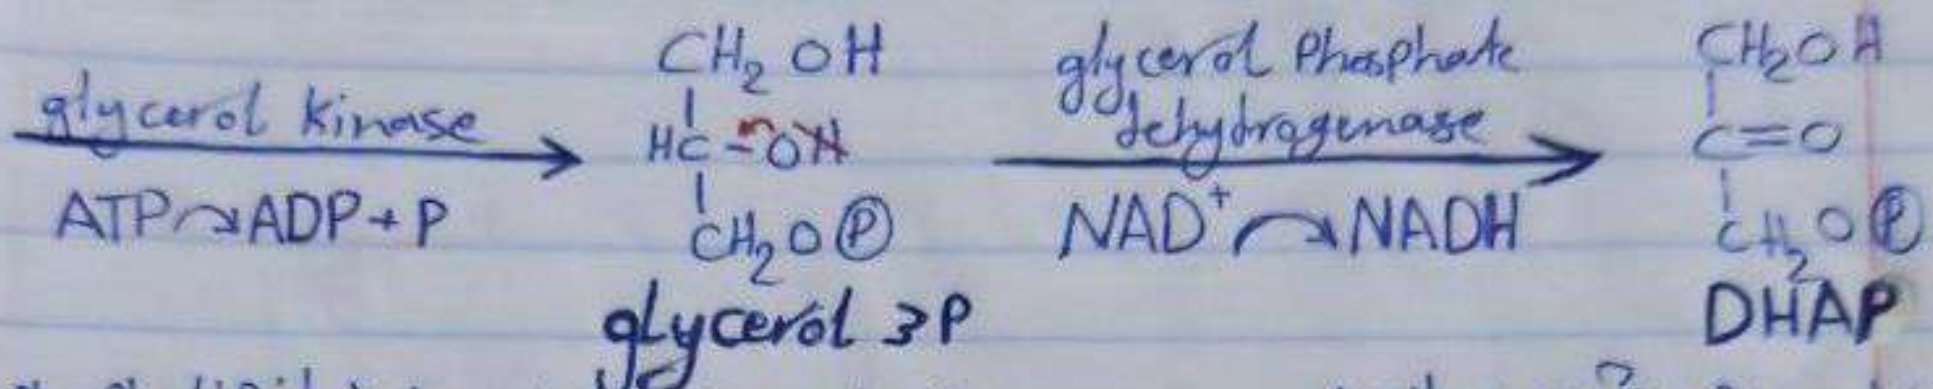 glycerol kinase
ATP ↷ ADP + P
CH₂OH
HC-OH
CH₂OⓅ
glycerol 3P
glycerol Phosphate
dehydrogenase
NAD⁺ ↷ NADH
CH₂OH
C=O
CH₂OⓅ
DHAP